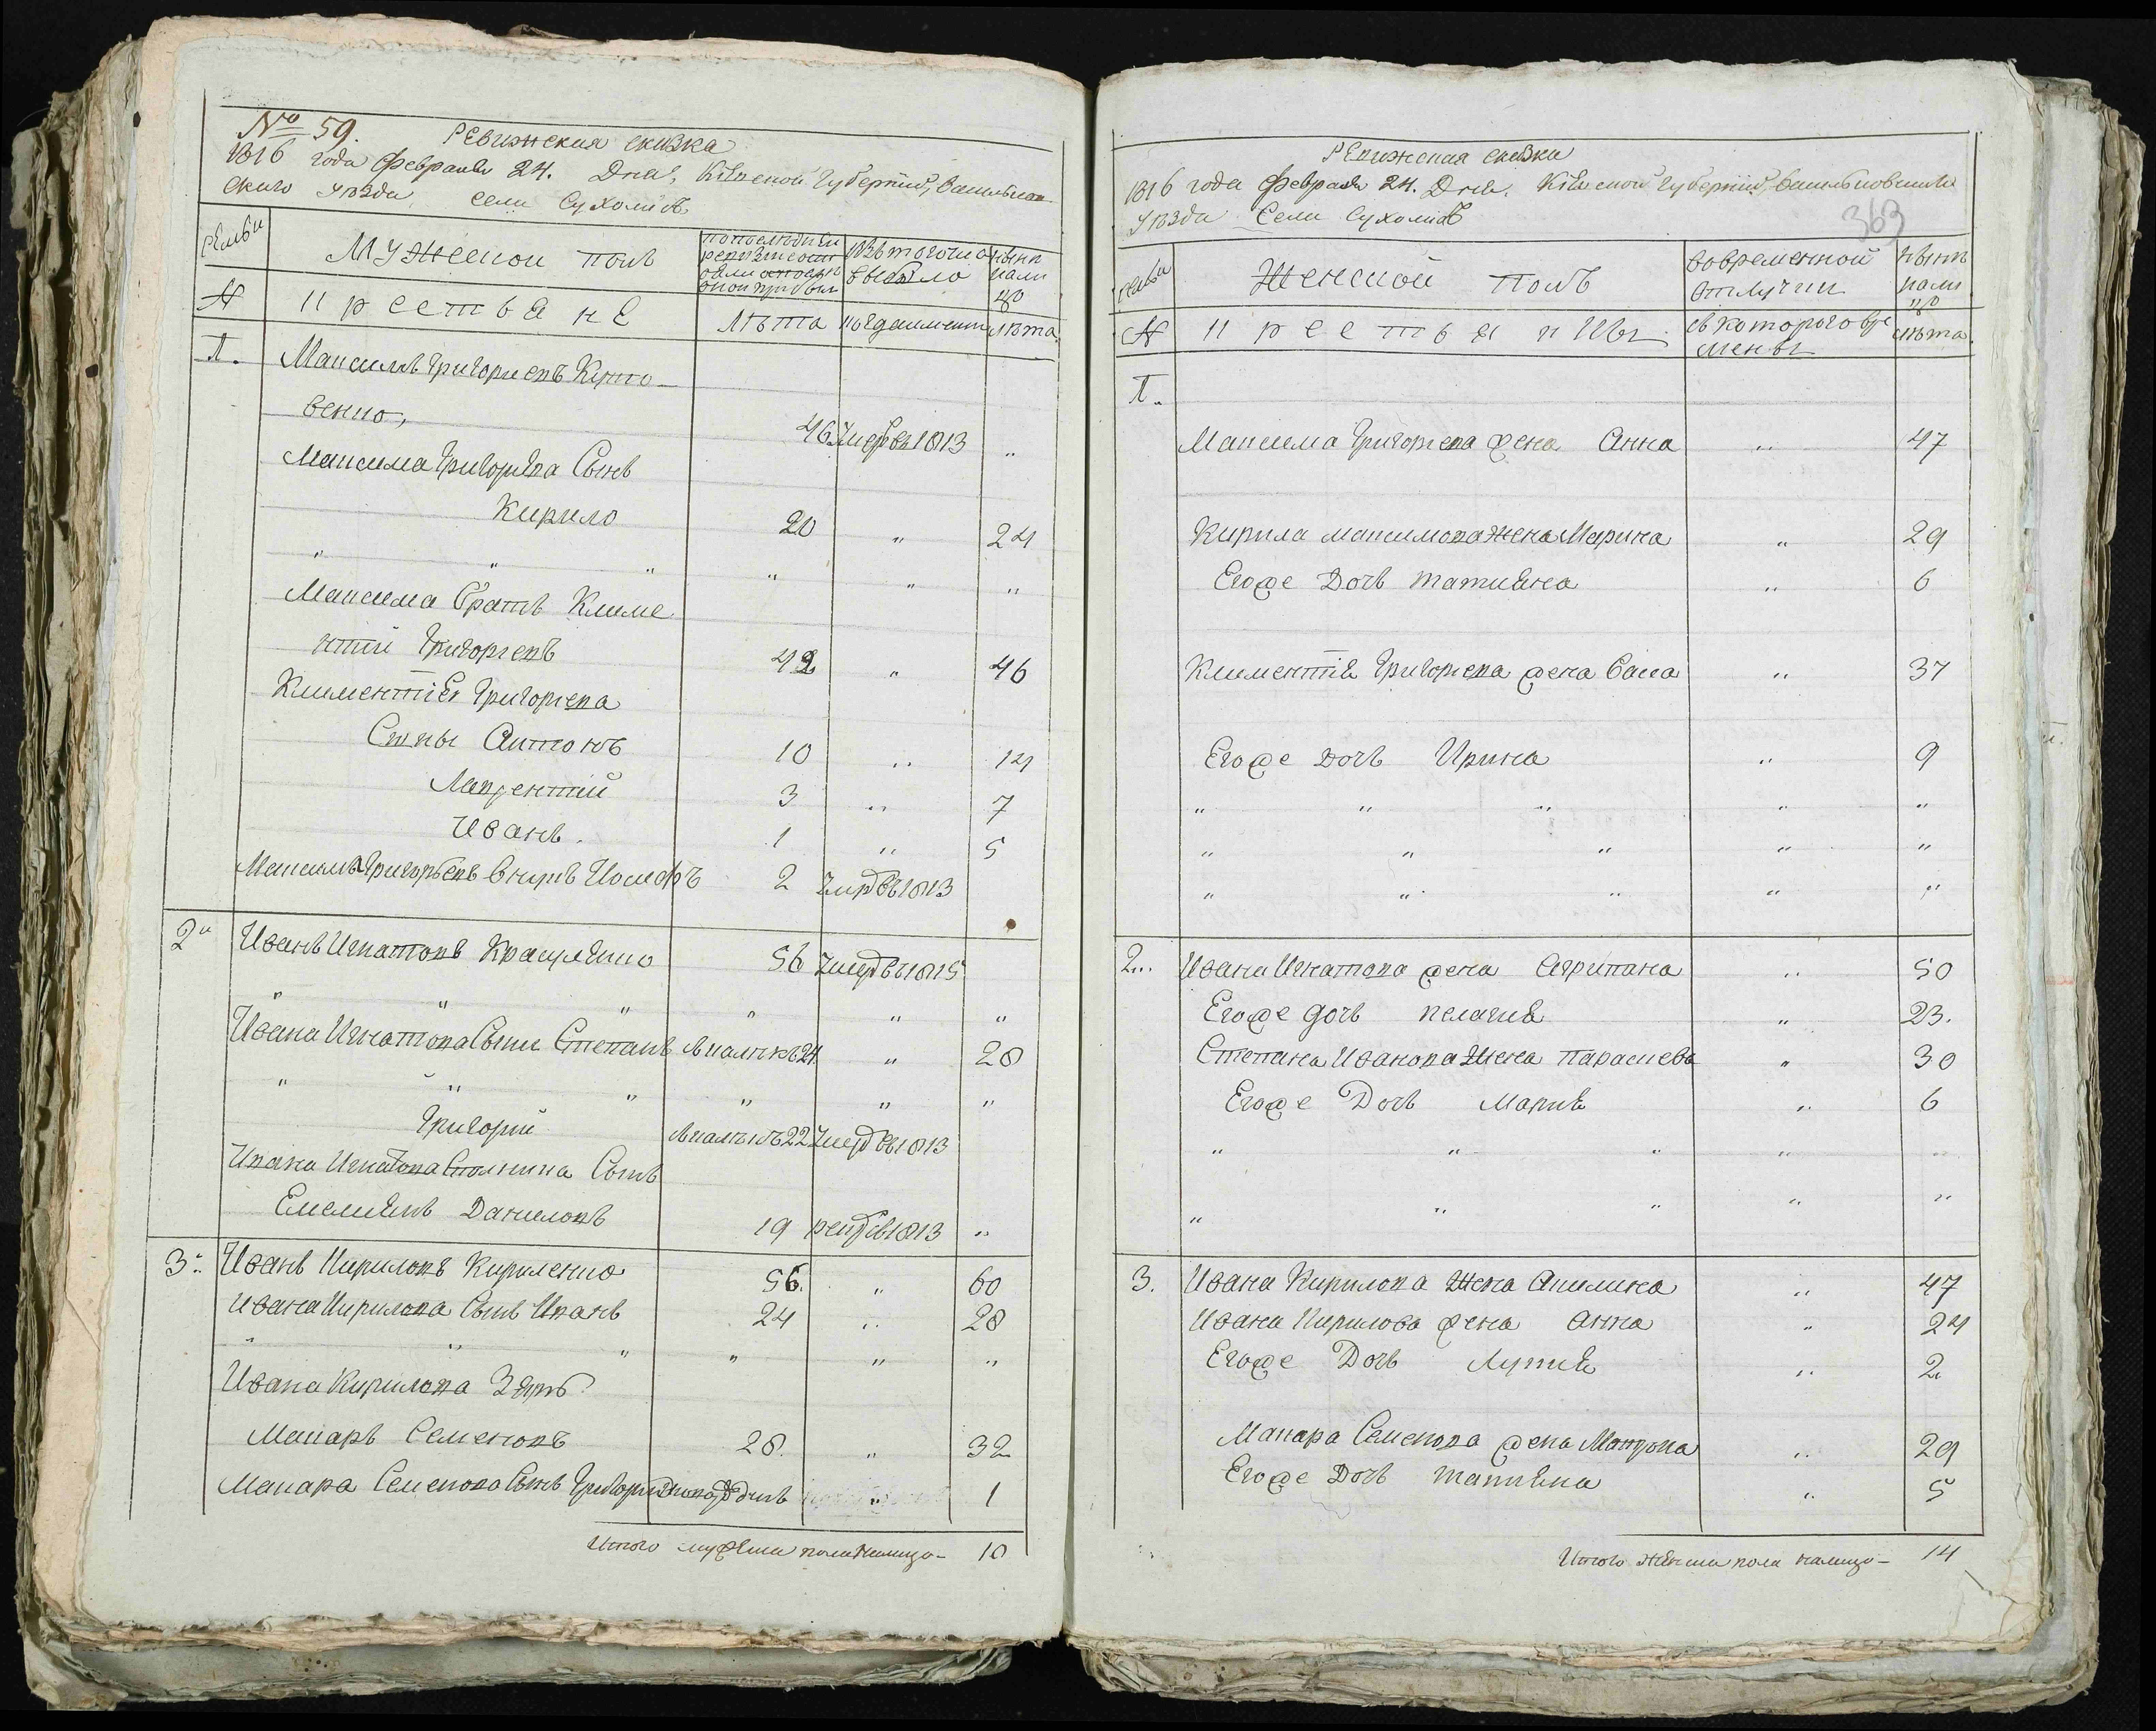 № 59.
Ревижская сказка
1816 года Февраля 24. Дня, Кіевской Губерніи, Васильков
скаго Уѣзда, села Сухолисъ
семьи
Мужеской полъ
по последней ревизіи
изъ того числа
выбыло
нынѣ
на ли
цо
№
крестьяне
Лѣта
когда именно
лѣта
1.
Максимъ Григорьевъ
венко,
46 Умре въ 1813 „
Максима Григорьева Сынъ
Кирило 20 „ 24
„ „ „ „ „ „
Максима Братъ Климе
нтій Григорьевъ 42 „ 46
Климентія Григорьева
Сыны Антонъ 10 „ 14
Лаврентій 3 „ 7
Иванъ. 1 „ 5
Максима Григорьевъ внукъ Иосифъ 2 Умре въ 1813
2„ Иванъ Игнатовъ 56 Умре въ 1815
„ „ „ „ „ „
Ивана Игнатова Сыни Степанъ 24 „ 28
„ „ „ „ „ „
Григорий 22 Умре въ 1813
Ивана Игнатова Сынъ
Емелиянъ Даниловъ 19 рекр въ 1813 „
3„ Иванъ Кириловъ Кириленко 56. „ 60
Ивана Кирилова Сынъ Иванъ 24 „ 28
„ „ „ „ „ „
Ивана Кирилова Зять
Макаръ Семеновъ 28. „ 32
Макара Семенова Сынъ Григорий „ 1
Итого мужеска пола налицо– 10
Ревижская сказка
1816 года Февраля 24. Дня. Кіевской Губерніи, Васильковскаго
Уѣзда Села Сухолисъ
363
семьи
Женской полъ
Во временной
отлучки
нынѣ
нали
цо
№
крестьянки
съ которого вре
мены
лѣта.
1.
Максима Григорьева жена Анна „ 47
Кирила Максимова жена Марина „ 29
Его же Дочь Татияна „ 6
Климентія Григорьева жена Васа „ 37
Его же дочь Ирина „ 9
„ „ „ „ „
„ „ „ „ „
„ „ „ „ „
2... Ивана Игнатова жена Агрипина „ 50
Его же дочь Пелагия „ 23.
Степана Иванова жена Параскева „ 30
Его же Дочь Мария „ 6
„ „ „ „ „
„ „ „ „ „
3. Ивана Кирилова жена Акилина „ 47
Ивана Кирилова жена Анна „ 24
Его же Дочь Лукия „ 2
Макара Семенова жена Матрона „ 29
Его же Дочь Татияна „ 5
Итого женска пола налицо– 14